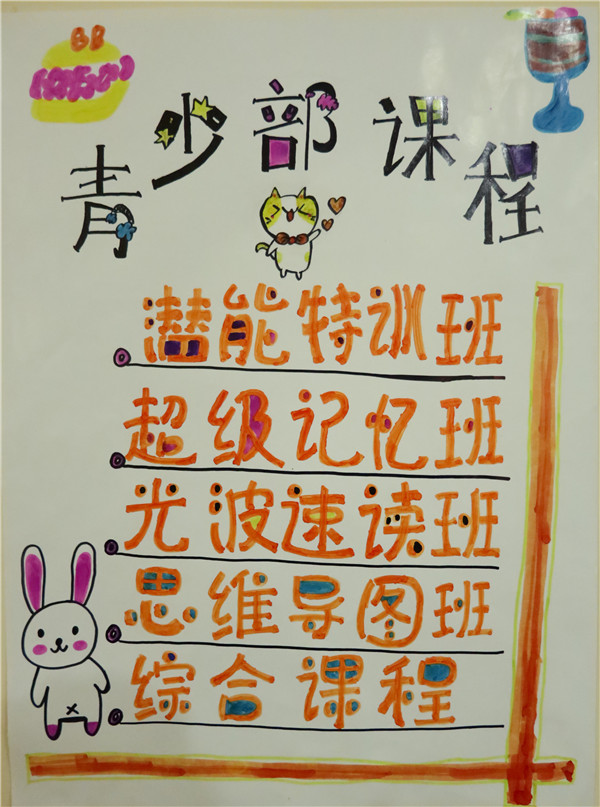 BB
青少部课程
潜能特训班
超级记忆班
光波速读班
思维导图班
综合课程